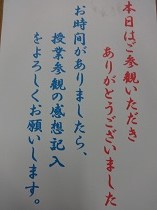 本日はご参観いただき
ありがとうございました
お時間がありましたら、
授業参観の感想記入
をよろしくお願いします。